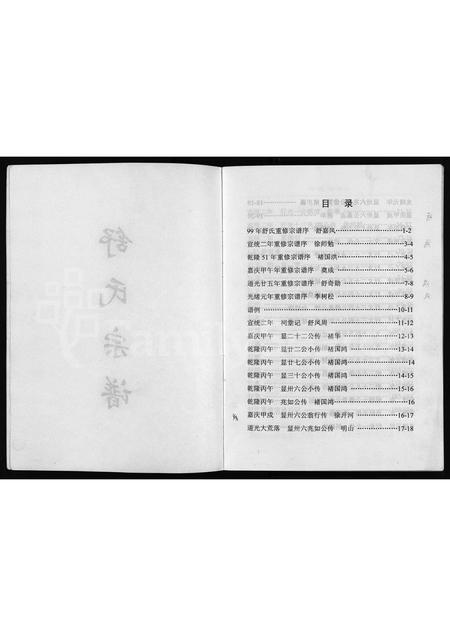 舒氏宗谱
目 录
99年舒氏重修宗谱序 舒嘉风⋯⋯⋯⋯1-2
宣统二年重修宗谱序 徐师勉⋯⋯⋯⋯3-4
乾隆51年重修宗谱序 褚国洪⋯⋯⋯⋯4-5
嘉庆甲午年重修宗谱序 窦成⋯⋯⋯⋯5-6
道光廿五年重修宗谱序 舒奇勋⋯⋯⋯⋯7-8
光绪元年重修宗谱序 李树松⋯⋯⋯⋯8-9
谱例⋯⋯⋯⋯10-11
宣统二年 祠堂记 舒凤周⋯⋯⋯⋯11-12
嘉庆甲午 显二十二公传 褚华⋯⋯⋯⋯12-13
乾隆丙午 显廿二公小传 褚国鸿⋯⋯⋯⋯13-14
乾隆丙午 显廿七公小传 褚国鸿⋯⋯⋯⋯14
乾隆丙午 显三十公小传 褚国鸿⋯⋯⋯⋯14-15
乾隆丙午 显卅六公小传 褚国鸿⋯⋯⋯⋯15-16
乾隆丙午 兆如公传 褚国鸿⋯⋯⋯⋯16
嘉庆甲戌 显卅六公翁行传 徐开河⋯⋯⋯⋯16-17
道光大荒落 显卅六兆如公传 明山⋯⋯⋯⋯17-18